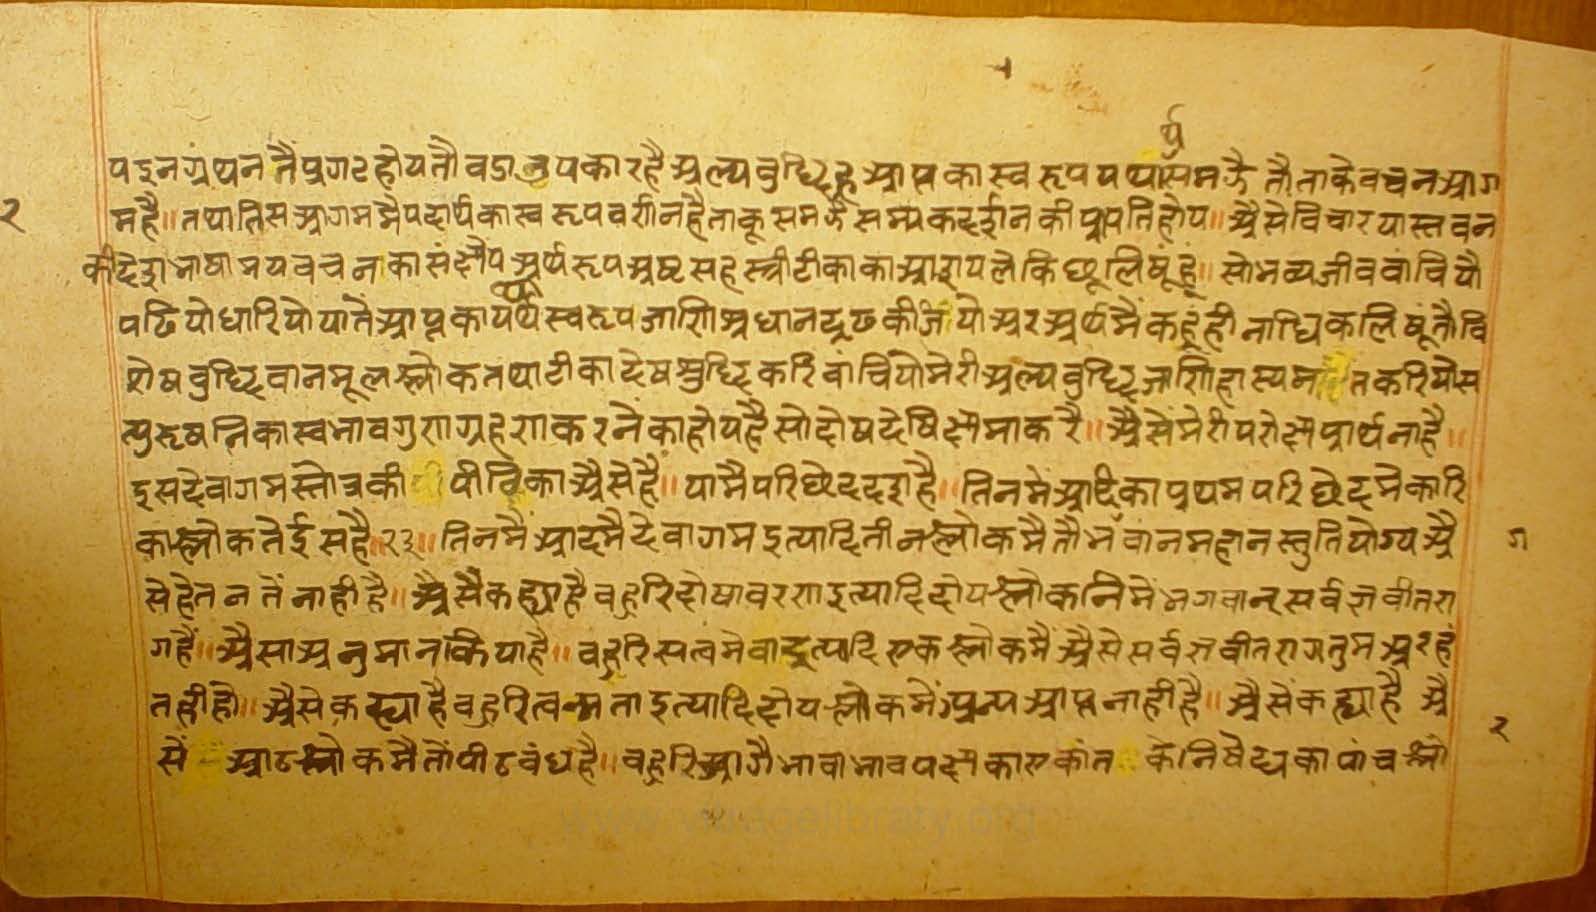 र्थ
प इन ग्रंथन तैं प्रगट होय तौ बडा उपकार है अल्प बुद्धि हू आप्त का स्वरूप यथा समझै तौ ताके वचन आग
२ म है॥ तथा तिस आगम मैं पदार्थ का स्वरूप वर्णन है ताकू समझै सम्यकदर्शन की प्राप्ति होय॥ अैसे विचार या स्तवन
की देशभाषामय वचनका संक्षेप अर्थरूप अष्टसहस्त्री टीका का आशय ले किछू लिषूं हूं॥ सो भव्य जीव वांचियौ
पढियो धारियो यातैं आप्त का यथार्थ स्वरूप जाणि श्रधान दृढ कीजियो अर अर्थ मैं कहूं हीनाधिक लिषूं तौ वि
शेष बुद्धिवान मूल श्लोक तथा टीका देष शुद्धि करि वांचियो मेरी अल्प बुद्धि जाणि हास्य मति करियो स
त्पुरुषनि का स्वभाव गुण ग्रहण करनैं का होय है सो दोष देषि क्षमा करै॥ अैसें मेरी परोक्ष प्रार्थना है॥
इस देवागम स्तोत्र की पीठिका अैसे है॥ यामै परिछेद दश है॥ तिनमें आदि का प्रथम परिछेद मे कारि
का श्लोक तेईस है॥२३॥ तिनमैं आदमै देवागम इत्यादि तीन श्लोक मै तौ भगवान महान स्तुति योग्य अै ग
से हेतनतें नाही है॥ अैसैं कह्या है वहुरि दोषावरण इत्यादि दोय श्लोकनिमें भगवान् सर्वज्ञ वीतरा
ग है॥ अैसा अनुमान किया है॥ वहुरि सत्वमेवा इत्यादि एक श्लोक मैं अैसे सर्वज्ञ वीतराग तुम अरहं
त ही हो॥ अैसे कह्या है वहुरि त्वन्मता इत्यादि दोय श्लोक में अन्य आप्त नाही है॥ अैसें कह्या है अै
सें आठ श्लोक मै तों पीठबंध है॥ वहुरि आगै भावाभाव पक्ष का एकांत के निषेद्य का पांच श्लो २